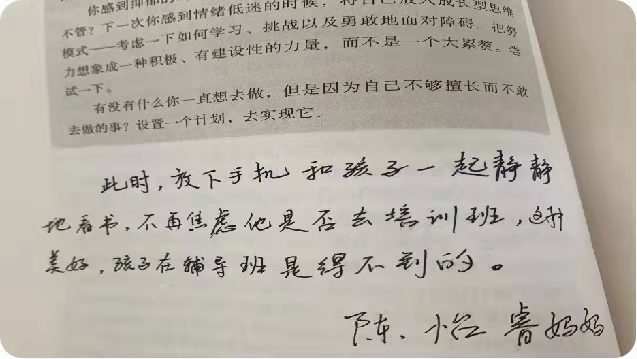 你感到抑郁的
不管？下一次你感到情绪低迷的时候，将自己放入成长型思维
模式——考虑一下如何学习、挑战以及勇敢地面对障碍。把努
力想象成一种积极、有建设性的力量，而不是一个大累赘。尝
试一下。
有没有什么你一直想去做，但是因为自己不够擅长而不敢
去做的事？设置一个计划，去实现它。
此时，放下手机和孩子一起静静
地看书，不再焦虑他是否去培训班，这种
美好，孩子在辅导班是得不到的。
陈怡睿妈妈